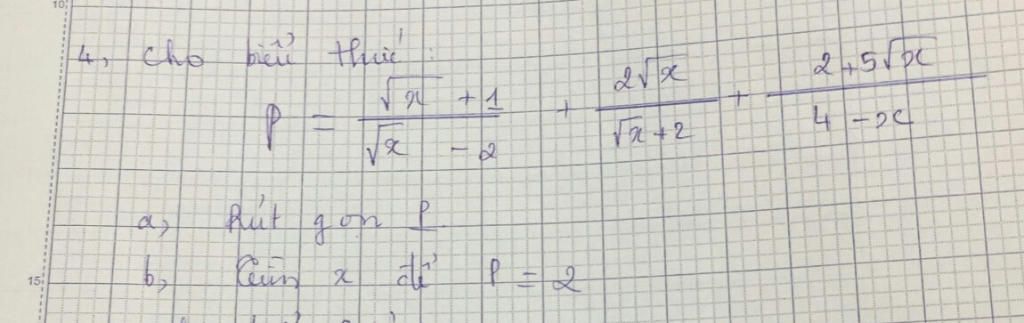 10
4, Cho biểu thức:
P = \frac{\sqrt{x} + 1}{\sqrt{x} - 2} + \frac{2\sqrt{x}}{\sqrt{x} + 2} + \frac{2 + 5\sqrt{x}}{4 - x}
a, Rút gọn P
b, Tìm x để P = 2
15